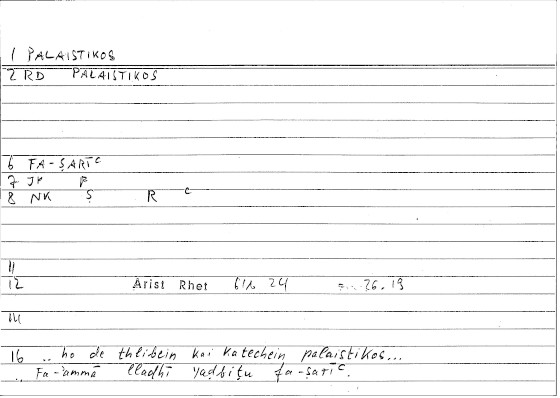 1 PALAISTIKOS
2 RD PALAISTIKOS
6 FA-ṢARĪᶜ
7 JK F
8 NK Ṣ R ᶜ
11
12 Arist Rhet 61b 24 26.19
14
16 .. ho de thlibein kai katechein palaistikos...
.. Fa-ammā lladhī yaḍbiṭu fa-ṣarīᶜ.